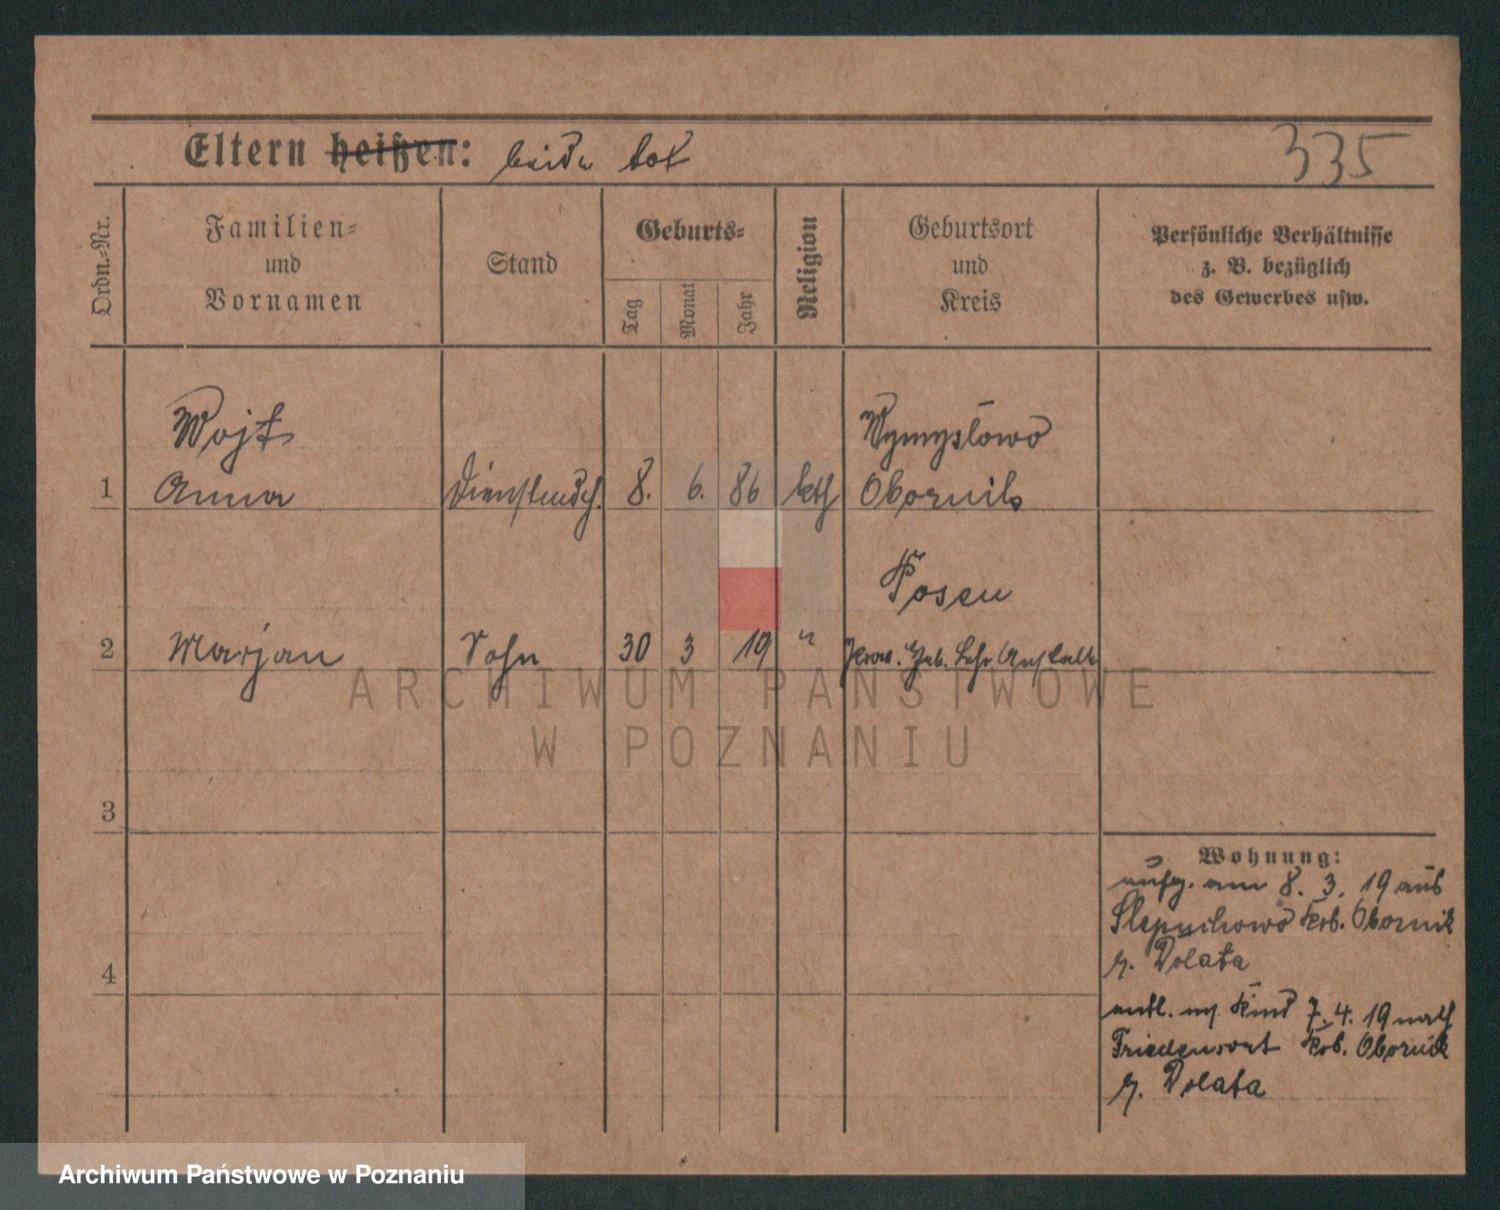 Eltern heißen: beide tot
335
Ordn.-Nr.
Familien-
und
Vornamen
Stand
Geburts-
Tag
Monat
Jahr
Religion
Geburtsort
und
Kreis
Persönliche Verhältnisse
z. B. bezüglich
des Gewerbes usw.
Wojt
Wymysłowo
1 Anna Dienstmdch. 8. 6. 86 kth Obornik
Posen
2 Marjan Sohn 30 3 19 " Prov. Heb. Lehr Anstalt
3
4
Wohnung:
aufg. am 8. 3. 19 aus
Slepuchowo Krs. Obornik
z. Dolata
entl. m. Kind 7. 4. 19 nach
Friedensort Krs. Obornik
z. Dolata
ARCHIWUM PAŃSTWOWE
W POZNANIU
Archiwum Państwowe w Poznaniu